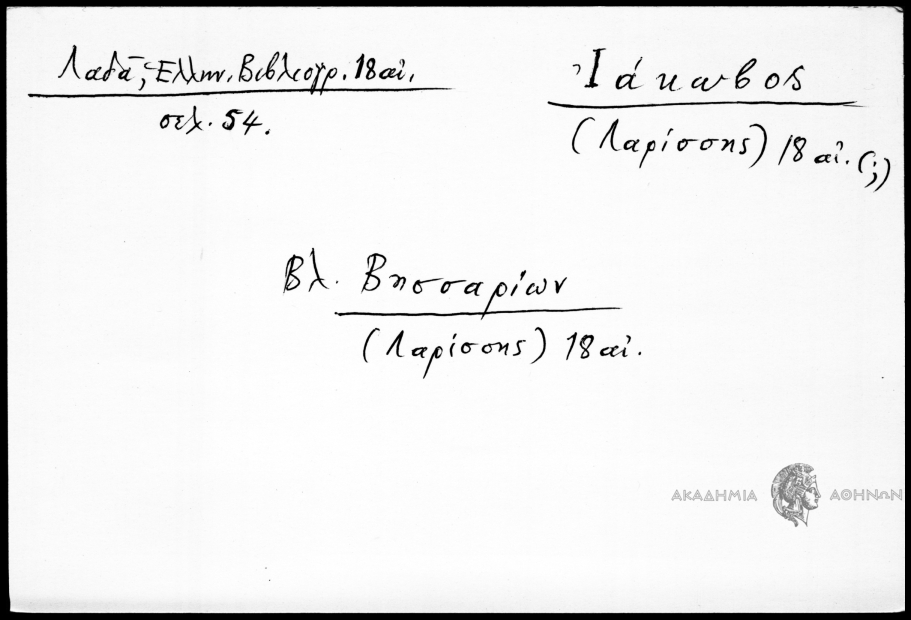 Λαδᾶ, Ἑλλην. Βιβλιογρ. 18 αἰ.
σελ. 54.
Ἰάκωβος
(Λαρίσσης) 18 αἰ. (;)
Βλ. Βησσαρίων
(Λαρίσσης) 18 αἰ.
ΑΚΑΔΗΜΙΑ ΑΘΗΝΩΝ